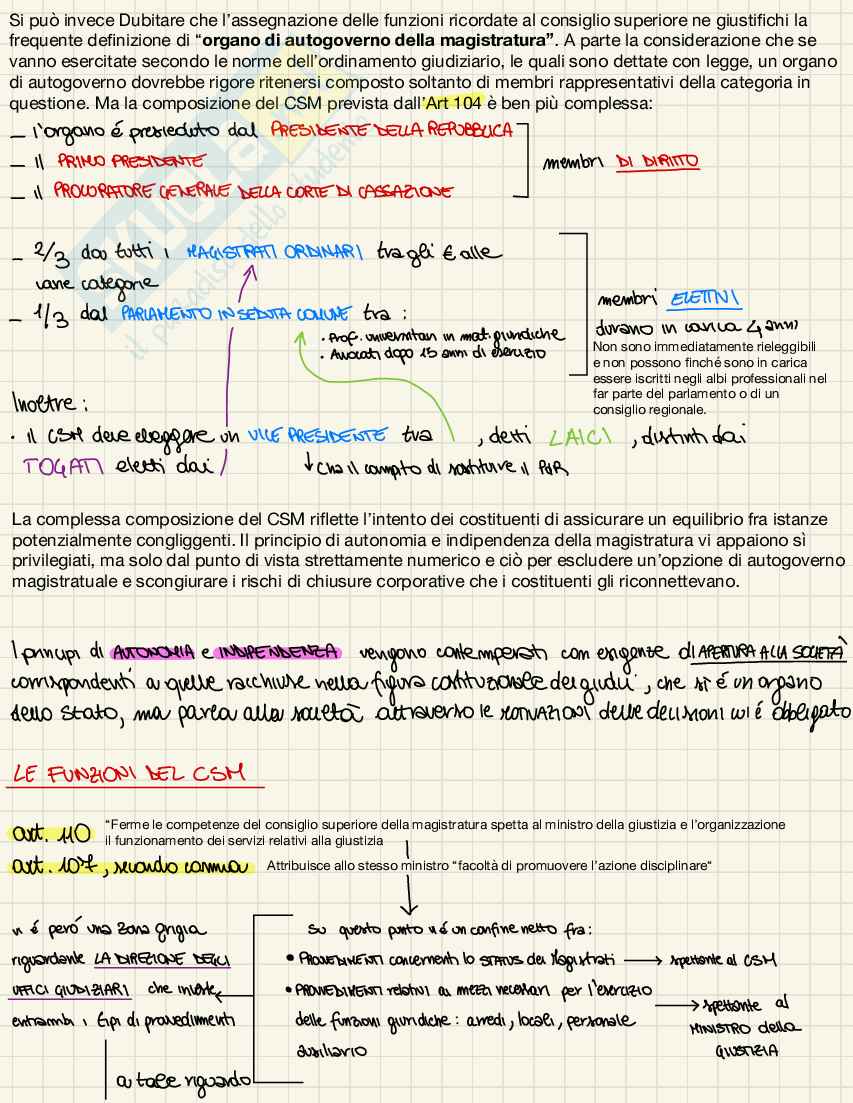 Si può invece Dubitare che l'assegnazione delle funzioni ricordate al consiglio superiore ne giustifichi la
frequente definizione di “organo di autogoverno della magistratura”. A parte la considerazione che se
vanno esercitate secondo le norme dell'ordinamento giudiziario, le quali sono dettate con legge, un organo
di autogoverno dovrebbe rigore ritenersi composto soltanto di membri rappresentativi della categoria in
questione. Ma la composizione del CSM prevista dall'Art 104 è ben più complessa:
– l'organo é presieduto dal PRESIDENTE DELLA REPUBBLICA
– il PRIMO PRESIDENTE
membri DI DIRITTO
– il PROCURATORE GENERALE DELLA CORTE DI CASSAZIONE
– 2/3 da tutti i MAGISTRATI ORDINARI tra gli € alle
varie categorie
– 1/3 dal PARLAMENTO IN SEDUTA COMUNE tra :
• Prof. universitari in mat. giuridiche
• Avvocati dopo 15 anni di esercizio
membri ELETTIVI
durano in carica 4 anni
Non sono immediatamente rieleggibili
e non possono finché sono in carica
essere iscritti negli albi professionali nel
far parte del parlamento o di un
consiglio regionale.
Inoltre :
• il CSM deve eleggere un VICE PRESIDENTE tra , detti LAICI , distinti dai
TOGATI eletti dai
↓ Cha il compito di sostituire il PdR
La complessa composizione del CSM riflette l'intento dei costituenti di assicurare un equilibrio fra istanze
potenzialmente congliggenti. Il principio di autonomia e indipendenza della magistratura vi appaiono sì
privilegiati, ma solo dal punto di vista strettamente numerico e ciò per escludere un'opzione di autogoverno
magistratuale e scongiurare i rischi di chiusure corporative che i costituenti gli riconnettevano.
I principi di AUTONOMIA e INDIPENDENZA vengono contemperati con esigenze di APERTURA ALLA SOCIETÀ
corrispondenti a quelle racchiuse nella figura costituzionale dei giudici, che sì é un organo
dello Stato, ma parla alla società attraverso le MOTIVAZIONI delle decisioni cui é obbligato
LE FUNZIONI DEL CSM
art. 110 “Ferme le competenze del consiglio superiore della magistratura spetta al ministro della giustizia e l'organizzazione
il funzionamento dei servizi relativi alla giustizia
art. 107, secondo comma Attribuisce allo stesso ministro “facoltà di promuovere l'azione disciplinare“
su questo punto v é un confine netto fra:
• PROVVEDIMENTI concernenti lo STATUS dei Magistrati → spettante al CSM
• PROVVEDIMENTI relativi ai mezzi necessari per l'esercizio
delle funzioni giuridiche : arredi, locali, personale
ausiliario
→ spettante al
MINISTRO della
GIUSTIZIA
v é però una zona grigia
riguardante LA DIREZIONE DEGLI
UFFICI GIUDIZIARI che investe
entrambi i tipi di provvedimenti
a tale riguardo
SKUOLA.NET
il paradiso dello studente